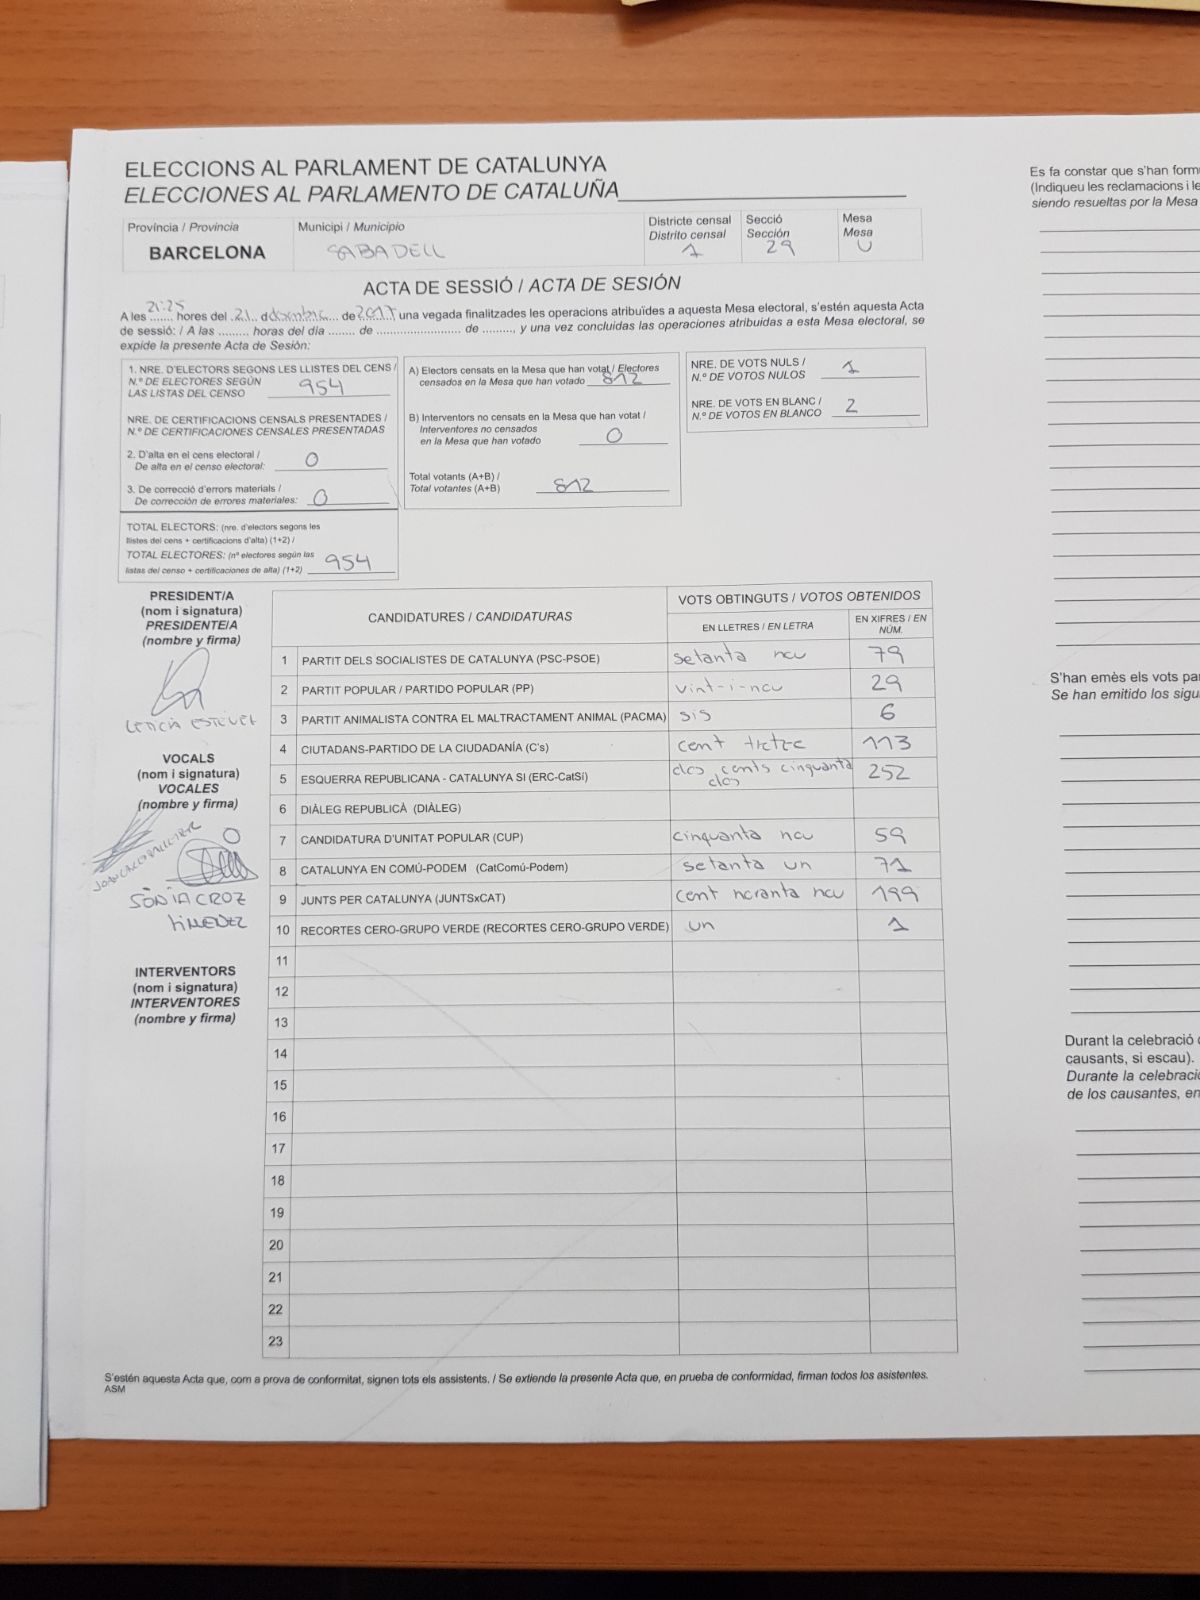 ELECCIONS AL PARLAMENT DE CATALUNYA
ELECCIONES AL PARLAMENTO DE CATALUÑA
Província / Provincia
BARCELONA
Municipi / Municipio
SABADELL
Districte censal
Distrito censal
1
Secció
Sección
29
Mesa
Mesa
U
ACTA DE SESSIÓ / ACTA DE SESIÓN
21:25
A les ....... hores del .21.. d desembre ... de 2017 una vegada finalitzades les operacions atribuïdes a aquesta Mesa electoral, s'estén aquesta Acta
de sessió: / A las ......... horas del día ........ de ......................... de .........., y una vez concluidas las operaciones atribuidas a esta Mesa electoral, se
expide la presente Acta de Sesión:
1. NRE. D'ELECTORS SEGONS LES LLISTES DEL CENS /
N.º DE ELECTORES SEGÚN
LAS LISTAS DEL CENSO 954
NRE. DE CERTIFICACIONS CENSALS PRESENTADES /
N.º DE CERTIFICACIONES CENSALES PRESENTADAS
2. D'alta en el cens electoral /
De alta en el censo electoral: 0
3. De correcció d'errors materials /
De corrección de errores materiales: 0
TOTAL ELECTORS: (nre. d'electors segons les
llistes del cens + certificacions d'alta) (1+2) /
TOTAL ELECTORES: (nº electores según las
listas del censo + certificaciones de alta) (1+2) 954
A) Electors censats en la Mesa que han votat / Electores
censados en la Mesa que han votado 812
B) Interventors no censats en la Mesa que han votat /
Interventores no censados
en la Mesa que han votado 0
Total votants (A+B) /
Total votantes (A+B) 812
NRE. DE VOTS NULS /
N.º DE VOTOS NULOS 1
NRE. DE VOTS EN BLANC /
N.º DE VOTOS EN BLANCO 2
PRESIDENT/A
(nom i signatura)
PRESIDENTE/A
(nombre y firma)
LETICIA ESTEVEZ
VOCALS
(nom i signatura)
VOCALES
(nombre y firma)
SÒNIA CROZ
JIMENEZ
INTERVENTORS
(nom i signatura)
INTERVENTORES
(nombre y firma)
CANDIDATURES / CANDIDATURAS
VOTS OBTINGUTS / VOTOS OBTENIDOS
EN LLETRES / EN LETRA
EN XIFRES / EN
NÚM.
1 PARTIT DELS SOCIALISTES DE CATALUNYA (PSC-PSOE) setanta nou 79
2 PARTIT POPULAR / PARTIDO POPULAR (PP) vint-i-nou 29
3 PARTIT ANIMALISTA CONTRA EL MALTRACTAMENT ANIMAL (PACMA) sis 6
4 CIUTADANS-PARTIDO DE LA CIUDADANÍA (C's) cent tretze 113
5 ESQUERRA REPUBLICANA - CATALUNYA SI (ERC-CatSí) dos cents cinquanta dos 252
6 DIÀLEG REPUBLICÀ (DIÀLEG)
7 CANDIDATURA D'UNITAT POPULAR (CUP) cinquanta nou 59
8 CATALUNYA EN COMÚ-PODEM (CatComú-Podem) setanta un 71
9 JUNTS PER CATALUNYA (JUNTSxCAT) cent noranta nou 199
10 RECORTES CERO-GRUPO VERDE (RECORTES CERO-GRUPO VERDE) un 1
11
12
13
14
15
16
17
18
19
20
21
22
23
S'estén aquesta Acta que, com a prova de conformitat, signen tots els assistents. / Se extiende la presente Acta que, en prueba de conformidad, firman todos los asistentes.
ASM
Es fa constar que s'han form
(Indiqueu les reclamacions i le
siendo resueltas por la Mesa
S'han emès els vots pa
Se han emitido los sigu
Durant la celebració
causants, si escau).
Durante la celebració
de los causantes, en